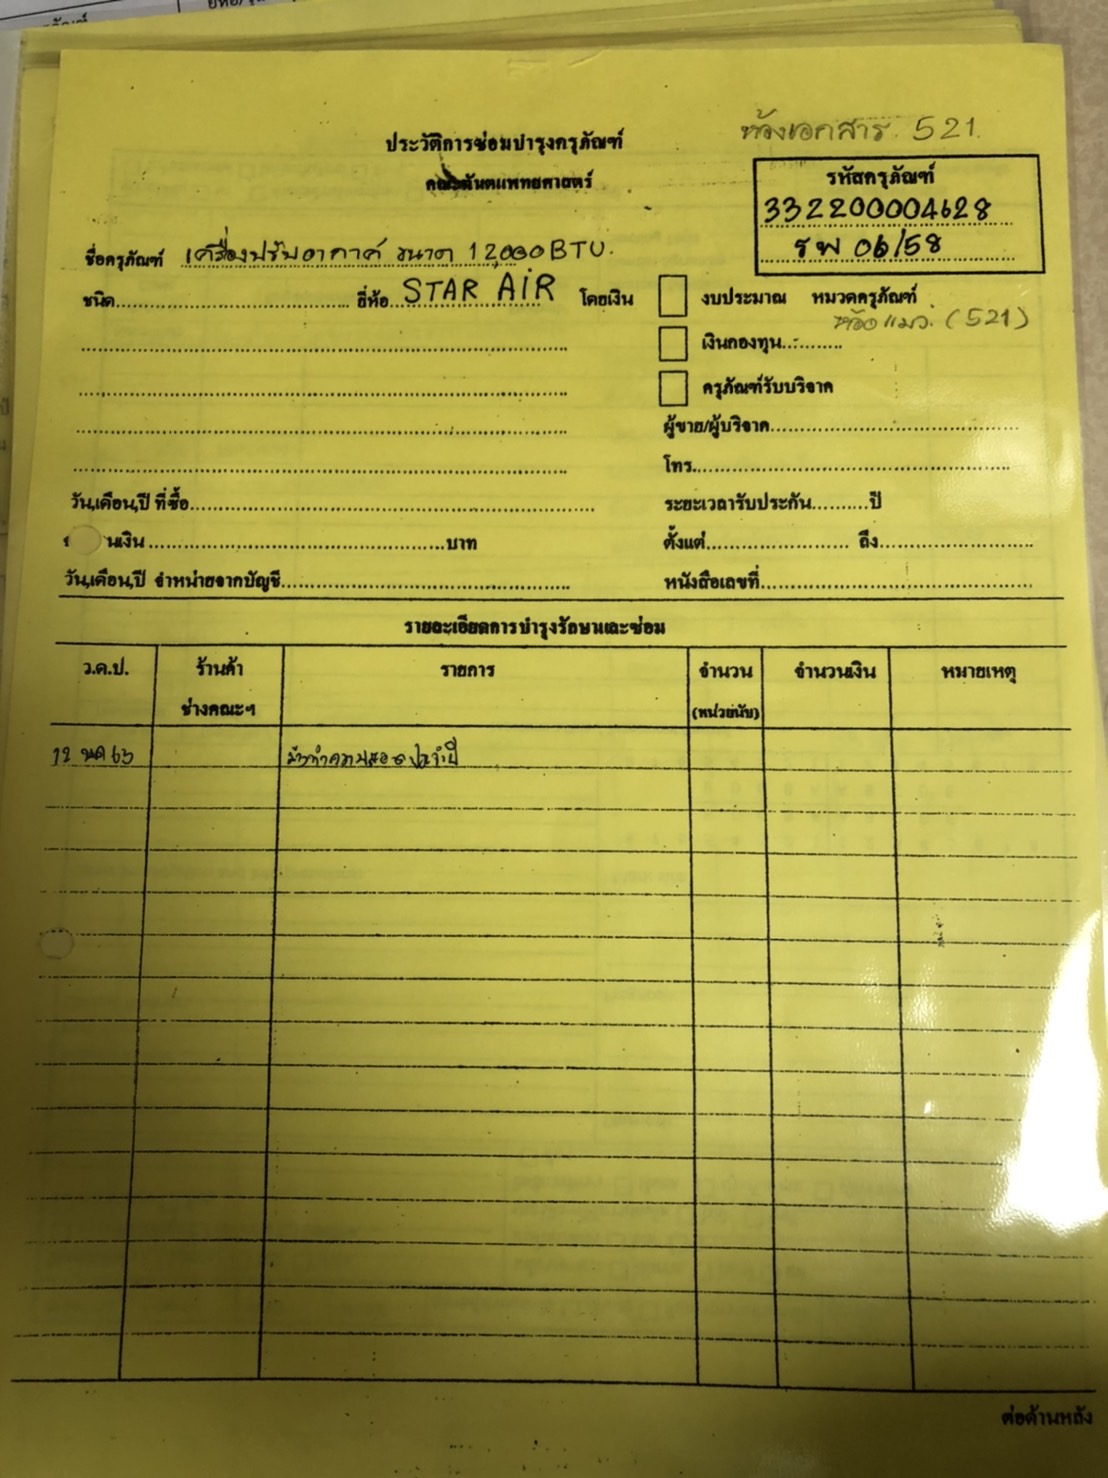 ห้องเอกสาร 521
ประวัติการซ่อมบำรุงครุภัณฑ์
คณะทันตแพทยศาสตร์
รหัสครุภัณฑ์
332200004628
รพ 06/58
ชื่อครุภัณฑ์ เครื่องปรับอากาศ ขนาด 12,000 BTU.
ชนิด ยี่ห้อ STAR AIR โดยเงิน งบประมาณ หมวดครุภัณฑ์
ห้อง แมว. (521)
เงินกองทุน
ครุภัณฑ์รับบริจาค
ผู้ขาย/ผู้บริจาค
โทร.
วัน,เดือน,ปี ที่ซื้อ ระยะเวลารับประกัน ปี
นเงิน บาท ตั้งแต่ ถึง
วัน,เดือน,ปี จำหน่ายจากบัญชี หนังสือเลขที่
รายละเอียดการบำรุงรักษาและซ่อม
ว.ด.ป. ร้านค้า รายการ จำนวน จำนวนเงิน หมายเหตุ
ช่างคณะฯ (หน่วยนับ)
12 63 ล้างทำความสะอาดประจำปี
ต่อด้านหลัง